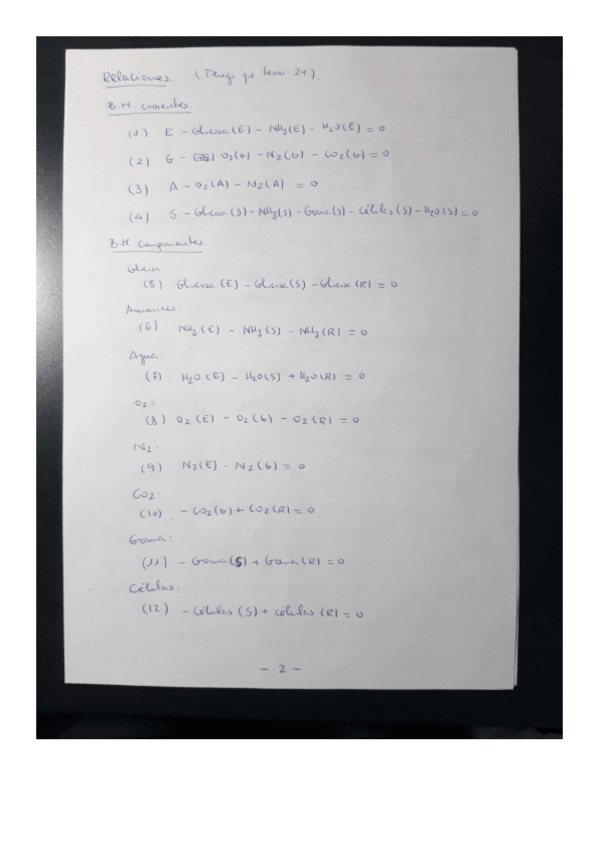 Relaciones (Tengo que tener 24).
B.M. corrientes
(1) E - Glucosa(E) - NH3(E) - H2O(E) = 0
(2) G - O2(G) - N2(G) - CO2(G) = 0
(3) A - O2(A) - N2(A) = 0
(4) S - Glucosa(S) - NH3(S) - Goma(S) - Células(S) - H2O(S) = 0
B.M. Componentes
Glucosa:
(5) Glucosa (E) - Glucosa(S) - Glucosa (R) = 0
Amoniaco:
(6) NH3 (E) - NH3 (S) - NH3 (R) = 0
Agua:
(7) H2O (E) - H2O(S) + H2O(R) = 0
O2:
(8) O2 (E) - O2 (G) - O2 (R) = 0
N2:
(9) N2(E) - N2(G) = 0
CO2:
(10) - CO2(G) + CO2(R) = 0
Goma:
(11) - Goma(S) + Goma(R) = 0
Células:
(12) - Células (S) + Células (R) = 0
- 2 -